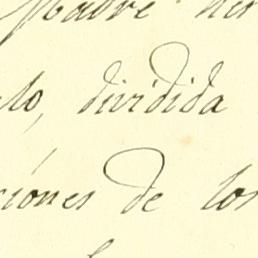 Madre
lo, dividida
ciones de los